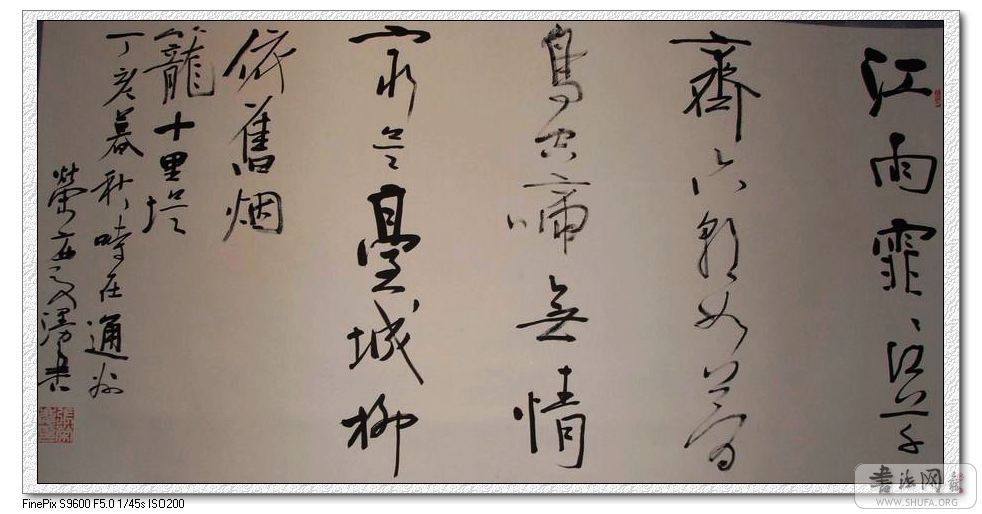 江雨霏〻江草
齊六朝如夢
鳥空啼無情
最是臺城柳
依舊烟
籠十里堤
丁亥暮秋時在通州
榮漫書
書法网
WWW.SHUFA.ORG
FinePix S9600 F5.0 1/45s ISO200